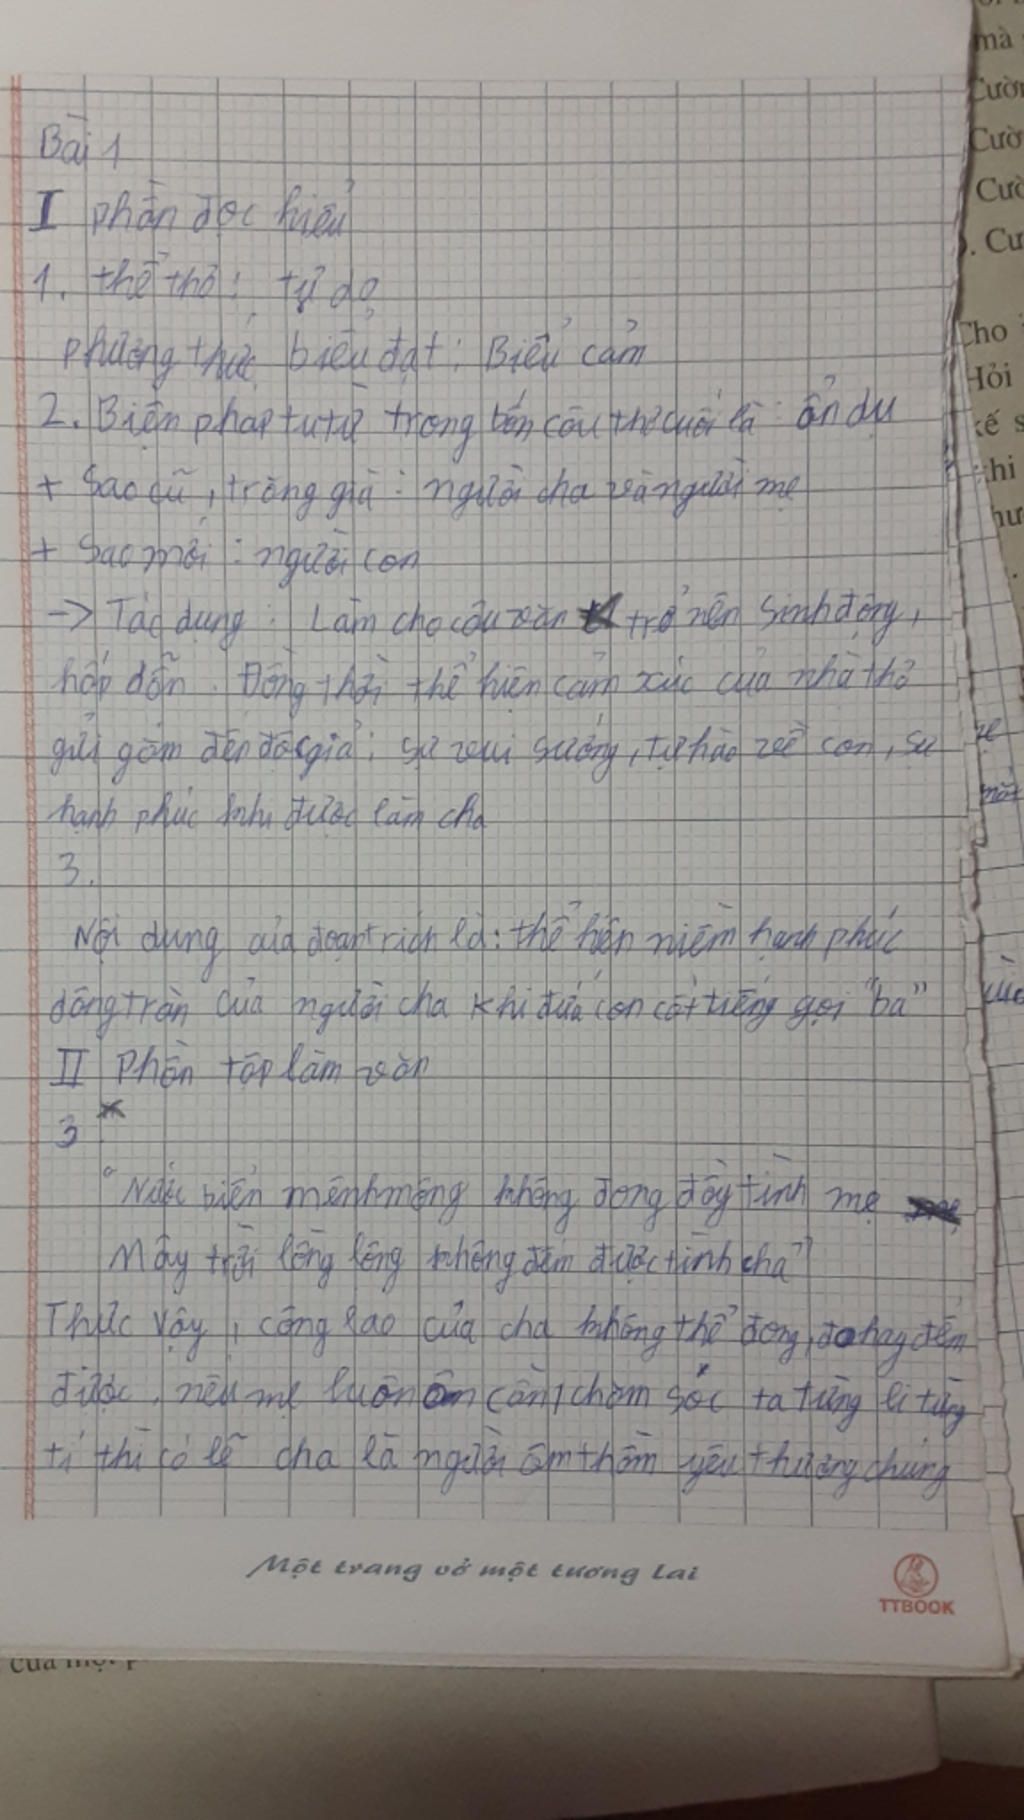 Bài 1
I phần đọc hiểu
1. thể thơ: tự do
phương thức biểu đạt: Biểu cảm
2. Biện pháp tu từ trong bốn câu thơ cuối là: ẩn dụ
+ Sao cũ, trăng già: người cha và người mẹ
+ Sao mới: người con
-> Tác dụng: Làm cho câu văn trở nên sinh động,
hấp dẫn. Đồng thời thể hiện cảm xúc của nhà thơ
gửi gắm đến độc giả: sự vui sướng, tự hào về con, sự
hạnh phúc khi được làm cha
3.
Nội dung của đoạn trích là: thể hiện niềm hạnh phúc
dâng tràn của người cha khi đứa con cất tiếng gọi "ba"
II Phần tập làm văn
3
"Nước biển mênh mông không đong đầy tình mẹ
Mây trời lồng lộng không đếm được tình cha"
Thực vậy, công lao của cha không thể đong, đo hay đếm
được. nếu mẹ luôn ân cần, chăm sóc ta từng li từng
tí thì có lẽ cha là người âm thầm yêu thương chúng
Một trang vở một tương lai
TTBOOK
mà
Cườ
Cườ
. Cư
Cho
Hỏi
kế s
khi